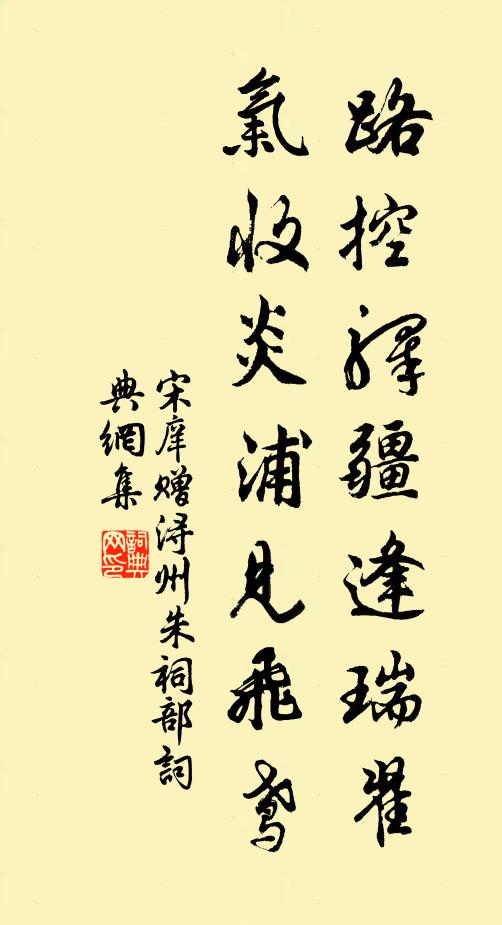 路控驛疆逢瑞翟
氣收炎浦見飛鳶
宋庠贈潯州朱祠部詞
典網集
詞典
网印